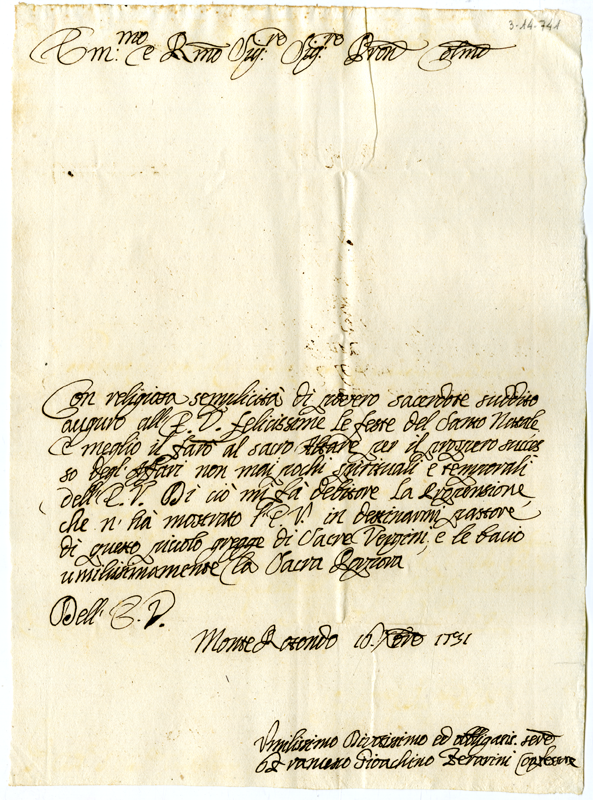 3-14-741
Em.mo e Rmo Sig.re Sig.re Pron Colmo
Con religiosa semplicità di povero sacerdote suddito
auguro all'E. V. felicissime le feste del Santo Natale
e meglio il farò al sacro Altare per il prospero succes
so degl'Affari non mai pochi spirituali e temporali
dell'E. V. Di ciò mi fà debitore la propensione,
che n'hà mostrato l'E. V. in destinarmi pastore
di questo piccolo gregge di Sacre Vergini, e le bacio
umilissimamente la Sacra Porpora
Dell'E. V.
Monte Rotondo 16. 1751
Umilissimo Divotissimo ed obbligatis. servo
Gioachino Zerarini Confessore